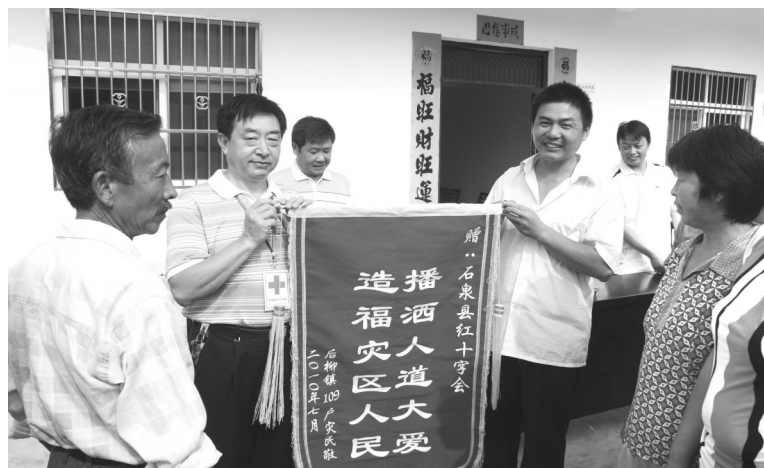 心想事成
福
福旺财旺運
赠：石泉县红十字会
播洒人道大爱
造福灾区人民
后柳镇109户灾民敬
二〇一〇年七月